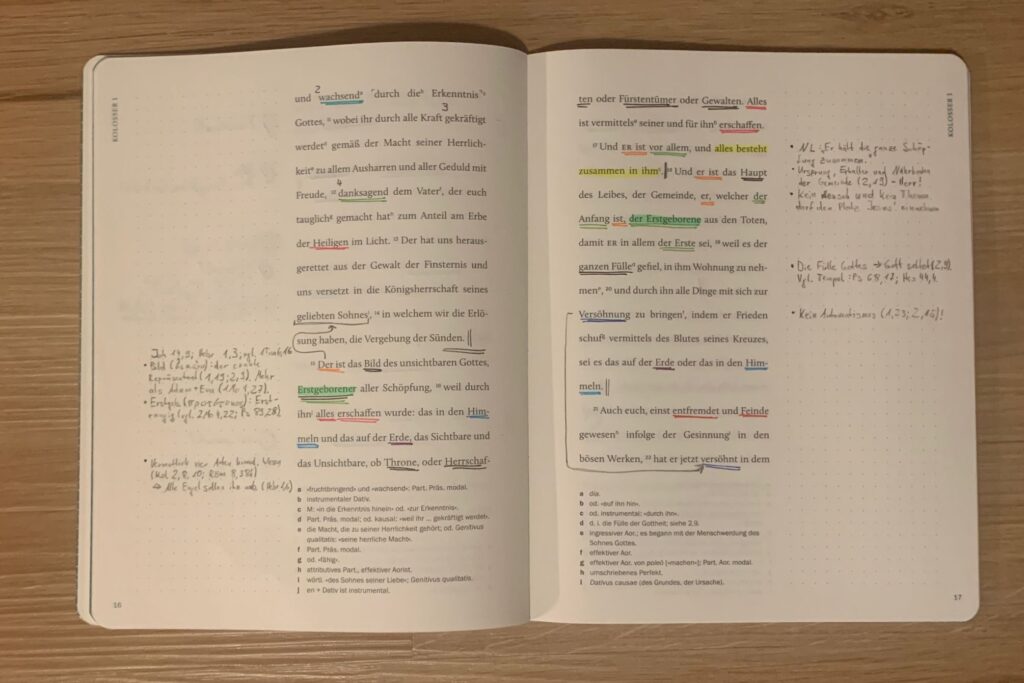 KOLOSSER 1
2
und wachsendᵃ ⌜durch dieᵇ Erkenntnis⌝ᶜ
3
Gottes, ¹¹ wobei ihr durch alle Kraft gekräftigt
werdetᵈ gemäß der Macht seiner Herrlich-
keitᵉ zu allem Ausharren und aller Geduld mit
4
Freude, ¹² danksagendᶠ dem Vater, der euch
tauglichᵍ gemacht hatʰ zum Anteil am Erbe
der Heiligen im Licht. ¹³ Der hat uns heraus-
gerettet aus der Gewalt der Finsternis und
uns versetzt in die Königsherrschaft seines
geliebten Sohnesⁱ, ¹⁴ in welchem wir die Erlö-
sung haben, die Vergebung der Sünden.
¹⁵ Der ist das Bild des unsichtbaren Gottes,
Erstgeborener aller Schöpfung, ¹⁶ weil durch
ihnʲ alles erschaffen wurde: das in den Him-
meln und das auf der Erde, das Sichtbare und
das Unsichtbare, ob Throne, oder Herrschaf-
• Bild
als Adam + Eva (1Mo 1,27).
a »fruchtbringend« und »wachsend«: Part. Präs. modal.
b instrumentaler Dativ.
c M: »in die Erkenntnis hinein« od. »zur Erkenntnis«.
d Part. Präs. modal; od. kausal: »weil ihr ... gekräftigt werdet«.
e die Macht, die zu seiner Herrlichkeit gehört; od. Genitivus
qualitatis: »seine herrliche Macht«.
f Part. Präs. modal.
g od. »fähig«.
h attributives Part., effektiver Aorist.
i wörtl. »des Sohnes seiner Liebe«; Genitivus qualitatis.
j en + Dativ ist instrumental.
16
KOLOSSER 1
ten oder Fürstentümer oder Gewalten. Alles
ist vermittelsᵃ seiner und für ihnᵇ erschaffen.
¹⁷ Und ER ist vor allem, und alles besteht
zusammen in ihmᶜ. ¹⁸ Und er ist das Haupt
des Leibes, der Gemeinde, er, welcher der
Anfang ist, der Erstgeborene aus den Toten,
damit ER in allem der Erste sei, ¹⁹ weil es der
ganzen Fülleᵈ gefiel, in ihm Wohnung zu neh-
menᵉ, ²⁰ und durch ihn alle Dinge mit sich zur
Versöhnung zu bringenᶠ, indem er Frieden
schufᵍ vermittels des Blutes seines Kreuzes,
sei es das auf der Erde oder das in den Him-
meln.
²¹ Auch euch, einst entfremdet und Feinde
gewesenʰ infolge der Gesinnungⁱ in den
bösen Werken, ²² hat er jetzt versöhnt in dem
• NL: „Er hält die ganze Schöp-
fung zusammen."
• Ursprung, Erhalter und
der Gemeinde (2,19) - Herr!
• Kein Mensch und kein Thema
darf den Platz Jesus' einnehmen
• Die Fülle Gottes → Gott selbst (2,9).
Vgl. Tempel: Ps 68,17; Hes 44,4.
• Kein Automatismus (1,23; 2,16)!
a dia.
b od. »auf ihn hin«.
c od. instrumental; »durch ihn«.
d d. i. die Fülle der Gottheit; siehe 2,9.
e ingressiver Aor.; es begann mit der Menschwerdung des
Sohnes Gottes.
f effektiver Aor.
g effektiver Aor. von poieō [»machen«]; Part. Aor. modal.
h umschriebenes Perfekt.
i Dativus causae (des Grundes, der Ursache).
17